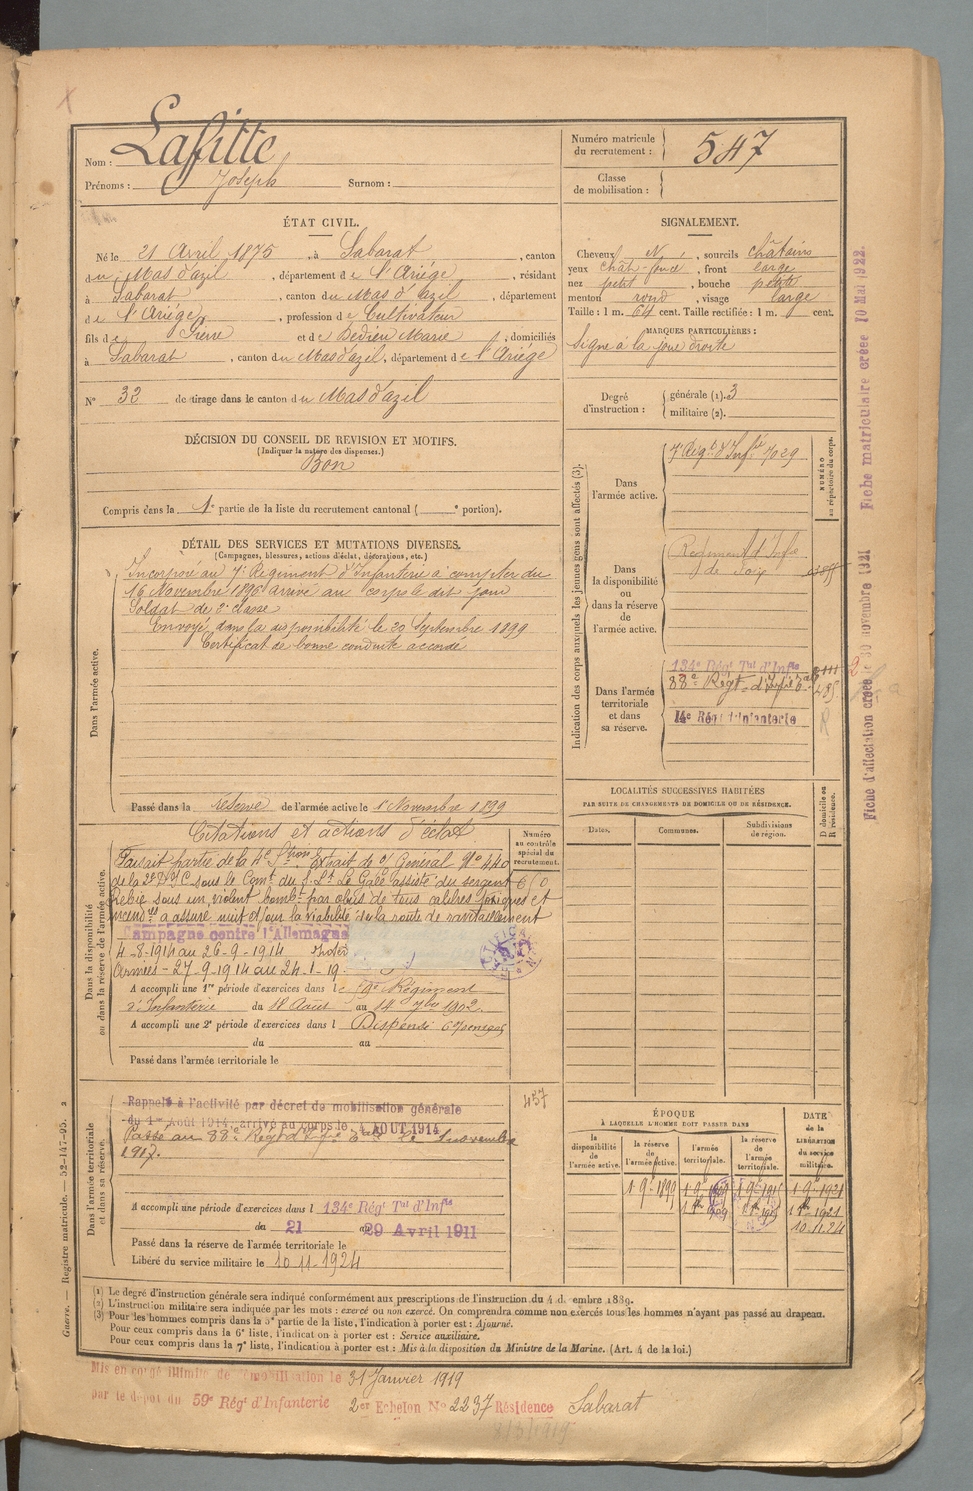 Nom : Lafitte
Prénoms : Joseph Surnom :
Numéro matricule du recrutement : 547
Classe de mobilisation :
ÉTAT CIVIL.
Né le 21 Avril 1875 , à Sabarat , canton
du Mas d'azil , département de l'Ariége , résidant
à Sabarat , canton du Mas d'azil , département
de l'Ariége , profession de Cultivateur
fils de Pierre et de Dedieu Marie , domiciliés
à Sabarat , canton du Mas d'azil, département de l'Ariége
N° 32 de tirage dans le canton du Mas d'azil
SIGNALEMENT.
Cheveux N , sourcils châtains
yeux chât-foncé , front large
nez petit , bouche petite
menton rond , visage large
Taille : 1 m. 64 cent. Taille rectifiée : 1 m. cent.
MARQUES PARTICULIÈRES :
Signe à la joue droite
Degré d'instruction : générale (1). 3
militaire (2).
DÉCISION DU CONSEIL DE REVISION ET MOTIFS.
(Indiquer la nature des dispenses.)
Bon
Compris dans la 1e partie de la liste du recrutement cantonal ( e portion).
DÉTAIL DES SERVICES ET MUTATIONS DIVERSES.
(Campagnes, blessures, actions d'éclat, décorations, etc.)
Dans l'armée active.
Incorporé au 7e Régiment d'Infanterie à compter du
16 Novembre 1896 arrivé au corps le dit jour
Soldat de 2e classe
Envoyé dans la disponibilité le 20 Septembre 1899
Certificat de bonne conduite accordé
Passé dans la réserve de l'armée active le 1er Novembre 1899
Indication des corps auxquels les jeunes gens sont affectés (3).
NUMÉRO au répertoire du corps.
Dans l'armée active.
7e Régt d'Infie 7029
Dans la disponibilité ou dans la réserve de l'armée active.
Régiment d'Infie
de Foix
Dans l'armée territoriale et dans sa réserve.
134e Régt Tal d'Infie
88e Régt d'Infie
14e Régt d'Infanterie
Dans la disponibilité ou dans la réserve de l'armée active.
Numéro au contrôle spécial du recrutement.
Citations et actions d'éclat
Faisait partie de la 4e extrait de Général No 440
de la 2e sous le Comt du S. Lt Le Gale assisté du sergent
Rebie sous un violent bombt par obus de tous calibres toxiques et
incendres a assuré nuit et jour la viabilité de la route de ravitaillement
Campagne contre l'Allemagne
4-8-1914 au 26-9-1914
Armées - 27-9-1914 au 24-1-19
A accompli une 1re période d'exercices dans le 59e Régiment
d'Infanterie du 18 Aout au 14 7bre 1902.
A accompli une 2e période d'exercices dans l Dispensé
du au
Passé dans l'armée territoriale le
Dans l'armée territoriale et dans sa réserve.
Rappelé à l'activité par décret de mobilisation générale
du 1er Août 1914, arrivé au corps le 4 AOUT 1914
Passé au 88e Régt d'Infie le 1er novembre
1917.
457
A accompli une période d'exercices dans l 134e Régt Tal d'Infie
du 21 au 29 Avril 1911
Passé dans la réserve de l'armée territoriale le
Libéré du service militaire le 10-11-1924
LOCALITÉS SUCCESSIVES HABITÉES
PAR SUITE DE CHANGEMENTS DE DOMICILE OU DE RÉSIDENCE.
Dates. Communes. Subdivisions de région. D domicile ou R résidence.
ÉPOQUE
À LAQUELLE L'HOMME DOIT PASSER DANS
la disponibilité de l'armée active. la réserve de l'armée active. l'armée territoriale. la réserve de l'armée territoriale.
DATE de la LIBÉRATION du service militaire.
1-9-1899 1-9-1909 1-9-1915 1-9-1921
10.11.24
(1) Le degré d'instruction générale sera indiqué conformément aux prescriptions de l'instruction du 4 décembre 1889.
(2) L'instruction militaire sera indiquée par les mots : exercé ou non exercé. On comprendra comme non exercés tous les hommes n'ayant pas passé au drapeau.
(3) Pour les hommes compris dans la 5e partie de la liste, l'indication à porter est : Ajourné.
Pour ceux compris dans la 6e liste, l'indication à porter est : Service auxiliaire.
Pour ceux compris dans la 7e liste, l'indication à porter est : Mis à la disposition du Ministre de la Marine. (Art. 4 de la loi.)
Guerre. — Registre matricule. — 52-147-95. 2
Mis en congé illimité de démobilisation le 31 Janvier 1919
par le dépôt du 59e Régt d'Infanterie 2er Echelon No 2237 Résidence Sabarat
Fiche d'affectation créée le 30 novembre 1921 Fiche matriculaire créée 10 Mai 1922.